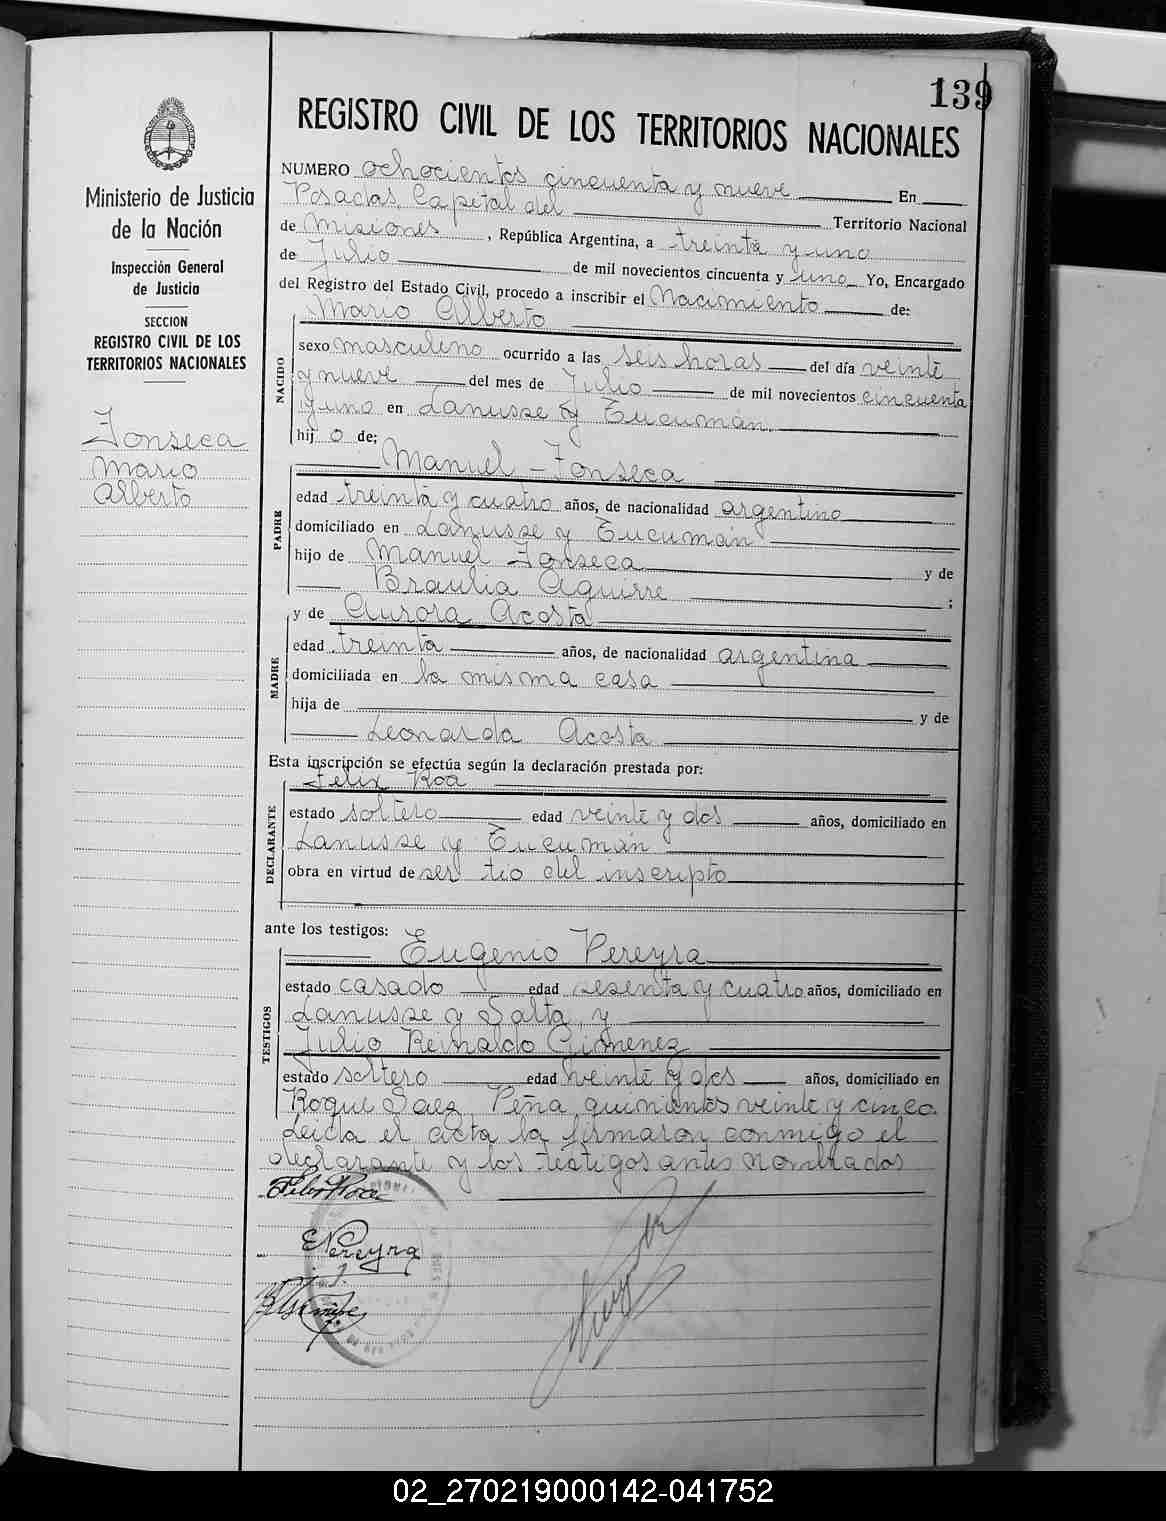 139
REGISTRO CIVIL DE LOS TERRITORIOS NACIONALES
Ministerio de Justicia
de la Nación
Inspección General
de Justicia
SECCION
REGISTRO CIVIL DE LOS
TERRITORIOS NACIONALES
Fonseca
Mario
Alberto
NUMERO ochocientos cincuenta y nueve En
Posadas Capital del Territorio Nacional
de Misiones, República Argentina, a treinta y uno
de Julio de mil novecientos cincuenta y uno Yo, Encargado
del Registro del Estado Civil, procedo a inscribir el Nacimiento de:
NACIDO
Mario Alberto
sexo masculino ocurrido a las seis horas del día veinte
y nueve del mes de Julio de mil novecientos cincuenta
y uno en Lanusse y Tucumán
hijo de:
PADRE
Manuel - Fonseca
edad treinta y cuatro años, de nacionalidad argentino
domiciliado en Lanusse y Tucumán
hijo de Manuel Fonseca y de
Braulia Aguirre ;
MADRE
y de Aurora Acosta
edad treinta años, de nacionalidad argentina
domiciliada en la misma casa
hija de y de
Leonarda Acosta
Esta inscripción se efectúa según la declaración prestada por:
DECLARANTE
Felix Roa
estado soltero edad veinte y dos años, domiciliado en
Lanusse y Tucumán
obra en virtud de ser tio del inscripto
ante los testigos:
TESTIGOS
Eugenio Pereyra
estado casado edad sesenta y cuatro años, domiciliado en
Lanusse y Salta y
Julio Reinaldo Gimenez
estado soltero edad veinte y dos años, domiciliado en
Roque Saez Peña quinientos veinte y cinco.
Leida el acta la firmaron conmigo el
declarante y los testigos antes nombrados
Felix Roa
E Pereyra
02_270219000142-041752